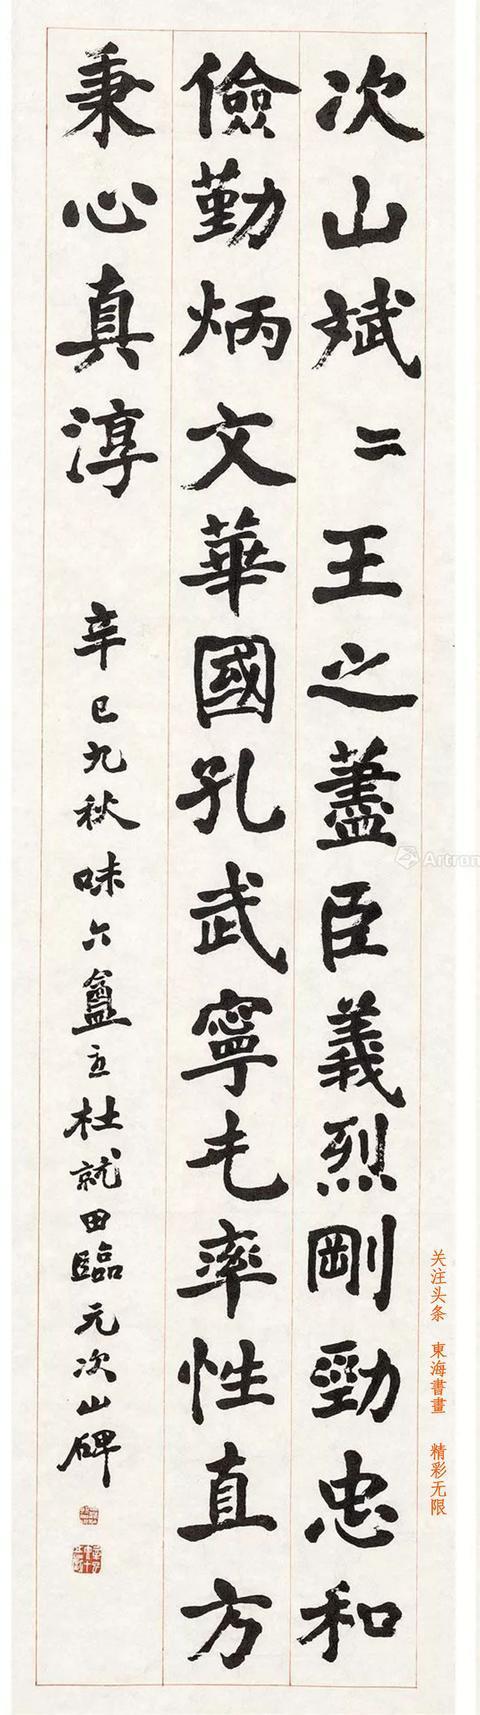 次山斌二王之藎臣義烈剛勁忠和
儉勤炳文華國孔武寧屯率性直方
秉心真淳
辛巳九秋味六盦主杜就田臨元次山碑
关注头条 東海書畫 精彩无限
Artron